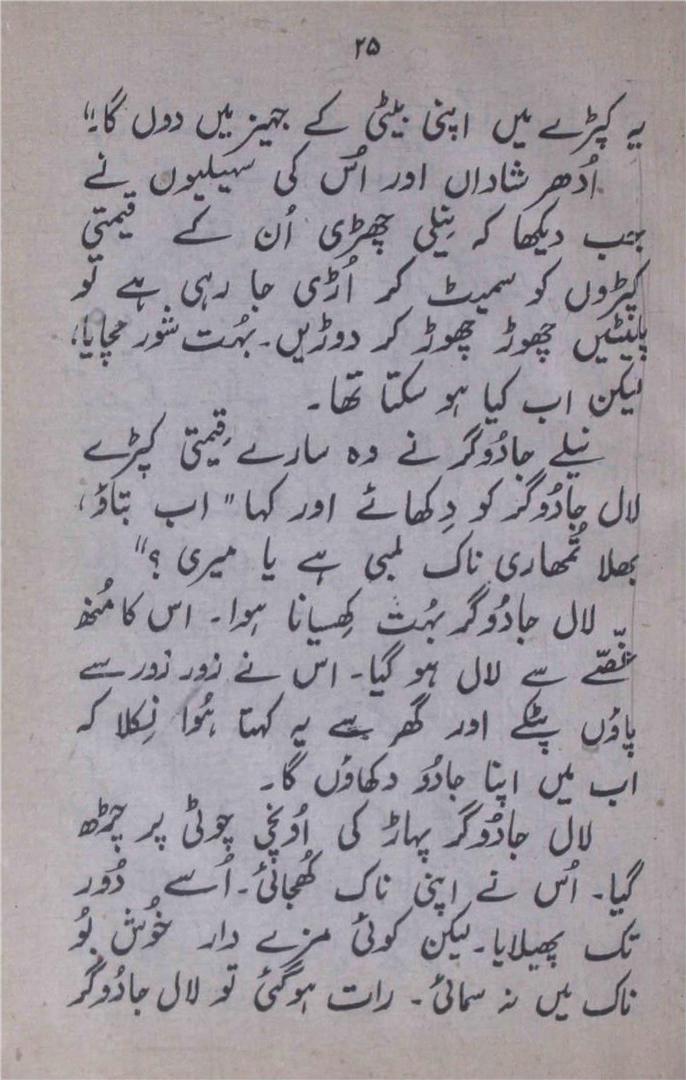 ۲۵
یہ کپڑے میں اپنی بیٹی کے جہیز میں دوں گا۔"
اُدھر شاداں اور اُس کی سہیلیوں نے
جب دیکھا کہ نیلی چھڑی اُن کے قیمتی
کپڑوں کو سمیٹ کر اُڑی جا رہی ہے تو
پلیٹیں چھوڑ چھوڑ کر دوڑیں۔ بہُت شور مچایا،
لیکن اب کیا ہو سکتا تھا۔
نیلے جادُوگر نے وہ سارے قیمتی کپڑے
لال جادُوگر کو دِکھائے اور کہا "اب بتاؤ،
بھلا تُمھاری ناک لمبی ہے یا میری ؟"
لال جادُوگر بہُت کِھسیانا ہوا۔ اس کا مُنھ
غصّے سے لال ہو گیا۔ اس نے زور زور سے
پاؤں پٹکے اور گھر سے یہ کہتا ہُوا نِکلا کہ
اب میں اپنا جادُو دکھاؤں گا۔
لال جادُوگر پہاڑ کی اُونچی چوٹی پر چڑھ
گیا۔ اُس نے اپنی ناک کُھجائی۔ اُسے دُور
تک پھیلایا۔ لیکن کوئی مزے دار خُوش بُو
ناک میں نہ سمائی۔ رات ہوگئی تو لال جادُوگر